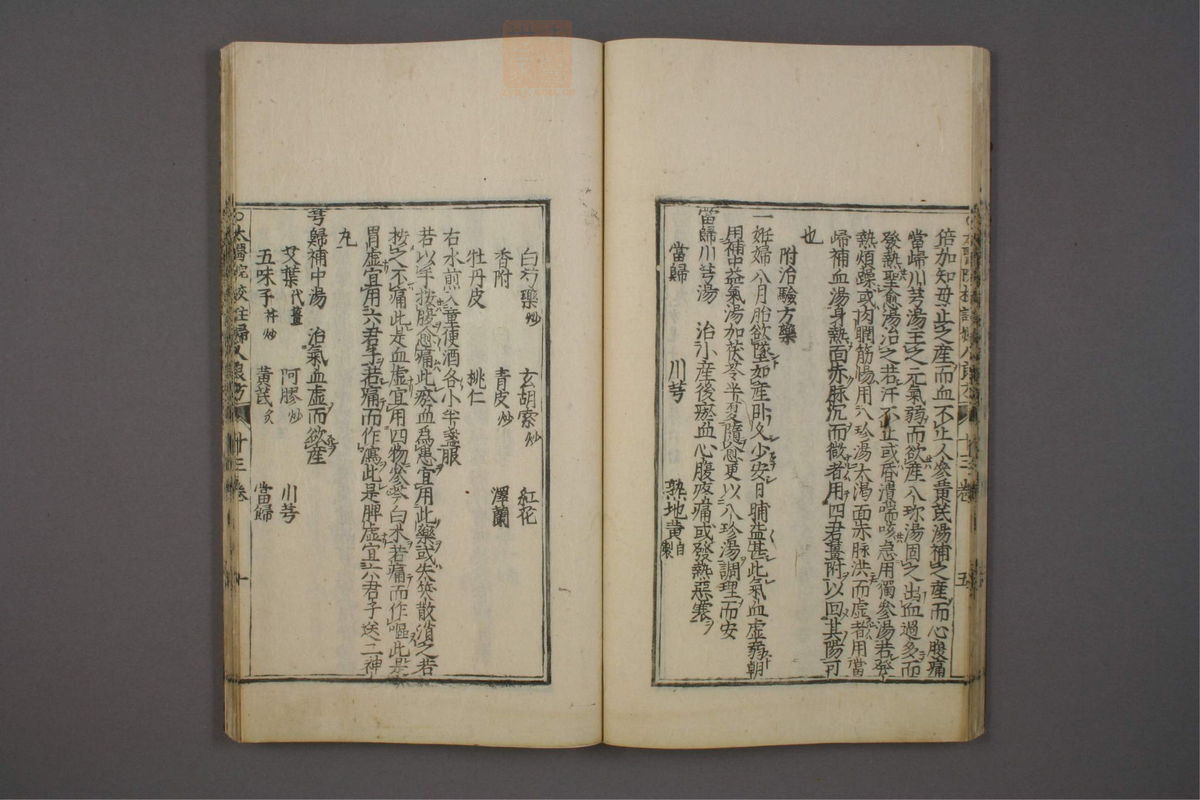 倍加知母止之産而血不止人參黄芪湯補之産而心腹痛
當歸川芎湯主之元氣弱而欲産八珎湯固之出血過多而
發熱聖愈湯治之若汗不止或昏憒喘咳急用獨參湯若發
熱煩躁或肉瞤筋惕用八珍湯大渇面赤脉洪而虚者用當
歸補血湯身熱面赤脉沉而微者用四君薑附以回其陽可
也
附治驗方藥
一妊婦八月胎欲墮如産卧久少安日晡益甚此氣血虚弱朝
用補中益氣湯加茯苓半夏隨愈更以八珍湯調理而安
當歸川芎湯 治小産後瘀血心腹疼痛或發熱惡寒
當歸 川芎 熟地黄自製
白芍藥炒 玄胡索炒 紅花
香附 青皮炒 澤蘭
牡丹皮 桃仁
右水煎入童便酒各小半盞服
若以手按腹愈痛此瘀血爲患宜用此藥或失笑散消之若
按之不痛此是血虚宜用四物參苓白朮若痛而作嘔此是
胃虚宜用六君子若痛而作瀉此是脾虚宜六君子送二神
丸
芎歸補中湯 治氣血虚而欲産
艾葉代薑 阿膠炒 川芎
五味子杵炒 黄芪炙 當歸
太醫院校註婦人良方 十三卷 十